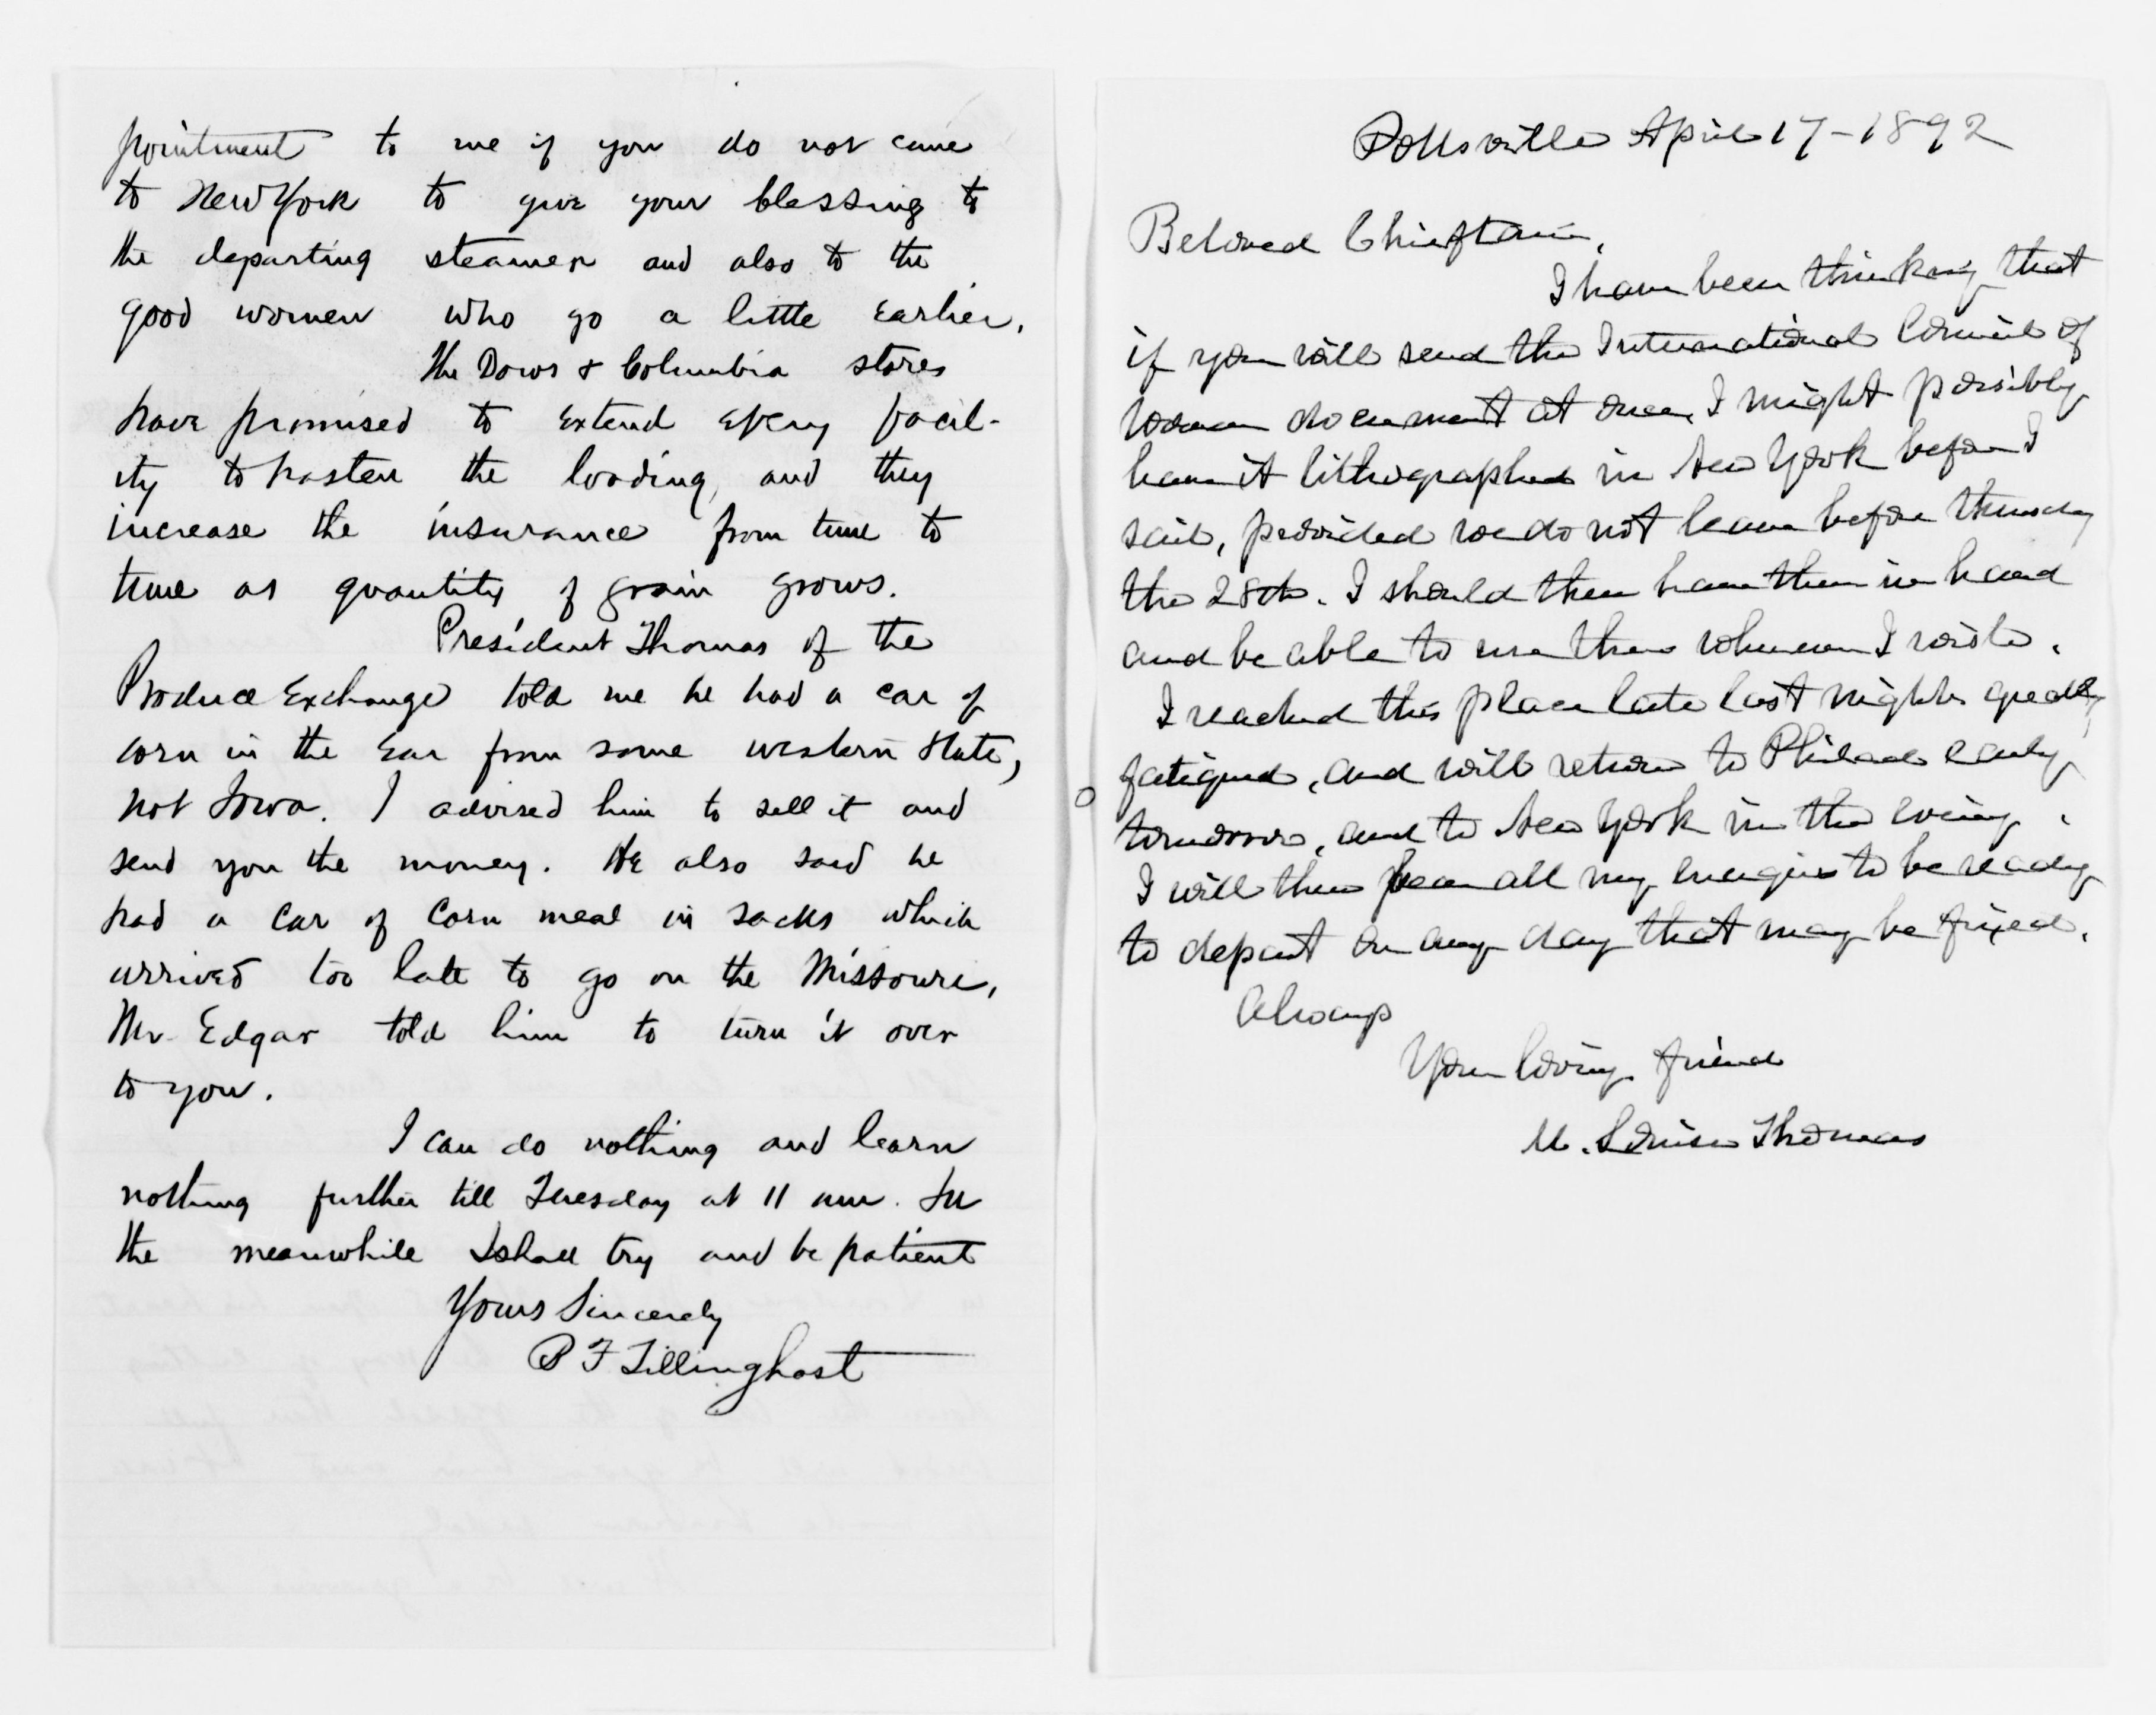 pointment to me if you do not come
to New York to give your blessing to
the departing steamer and also to the
good women who go a little earlier.
The Dows & Columbia stores
have promised to extend every facil-
ity to hasten the loading, and they
increase the insurance from time to
time as quantity of grain grows.
President Thomas of the
Produce Exchange told me he had a car of
corn in the ear from some western State,
not Iowa. I advised him to sell it and
send you the money. He also said he
had a car of corn meal in sacks which
arrived too late to go on the Missouri,
Mr. Edgar told him to turn it over
to you.
I can do nothing and learn
nothing further till Tuesday at 11 am. In
the meanwhile I shall try and be patient
Yours Sincerely
B F Tillinghast
Pottsville April 17-1892
Beloved Chieftain,
I have been thinking that
if you will send the International Council of
Women document at once, I might possibly
have it lithographed in New York before I
sail, provided we do not leave before Thursday
the 28th. I should then have them in hand
and be able to use them whenever I wish.
I reached this place late last night greatly
fatigued, and will return to Philad early
tomorrow, and to New York in the evening.
I will then all my energies to be ready
to depart on any day that may be fixed.
Always
Your loving friend
M. Louise Thomas